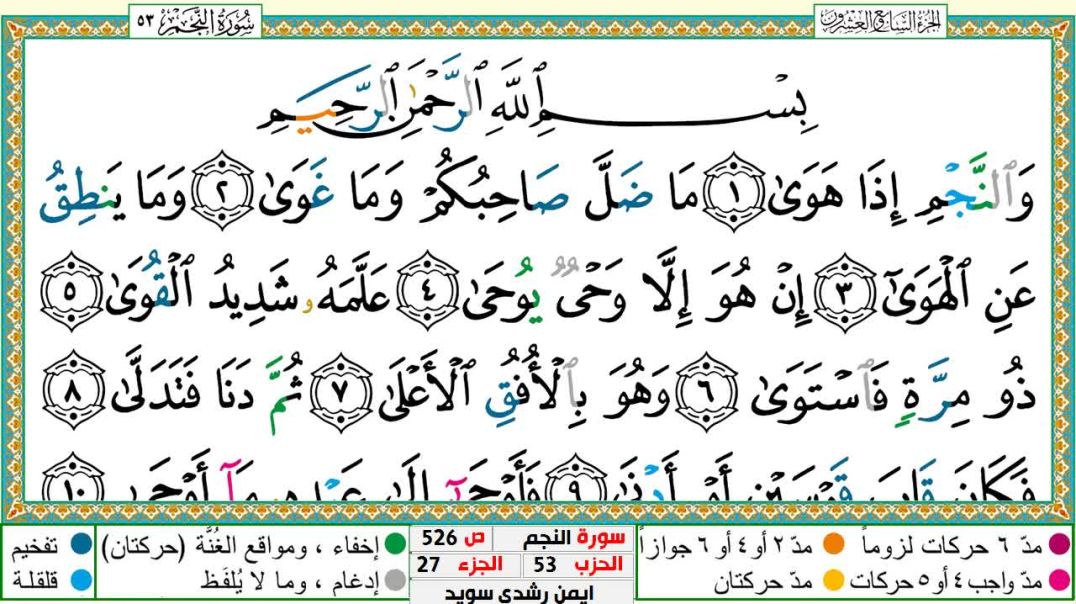 الجزء السابع والعشرون
سورة النجم ٥٣
بِسْمِ ٱللَّهِ ٱلرَّحْمَٰنِ ٱلرَّحِيمِ
وَٱلنَّجْمِ إِذَا هَوَىٰ ١ مَا ضَلَّ صَاحِبُكُمْ وَمَا غَوَىٰ ٢ وَمَا يَنطِقُ
عَنِ ٱلْهَوَىٰٓ ٣ إِنْ هُوَ إِلَّا وَحْىٌ يُوحَىٰ ٤ عَلَّمَهُۥ شَدِيدُ ٱلْقُوَىٰ ٥
ذُو مِرَّةٍ فَٱسْتَوَىٰ ٦ وَهُوَ بِٱلْأُفُقِ ٱلْأَعْلَىٰ ٧ ثُمَّ دَنَا فَتَدَلَّىٰ ٨
فَكَانَ قَابَ قَوْسَيْنِ أَوْ أَدْنَىٰ ٩ فَأَوْحَىٰٓ إِلَىٰ عَبْدِهِۦ مَآ أَوْحَىٰ ١٠
مدّ ٦ حركات لزوماً مدّ ٢ أو ٤ أو ٦ جوازاً
مدّ واجب ٤ أو ٥ حركات مدّ حركتان
سورة النجم ص 526
الحزب 53 الجزء 27
ايمن رشدي سويد
إخفاء ، ومواقع الغُنَّة (حركتان) تفخيم
إدغام ، وما لا يُلفَظ قلقلة